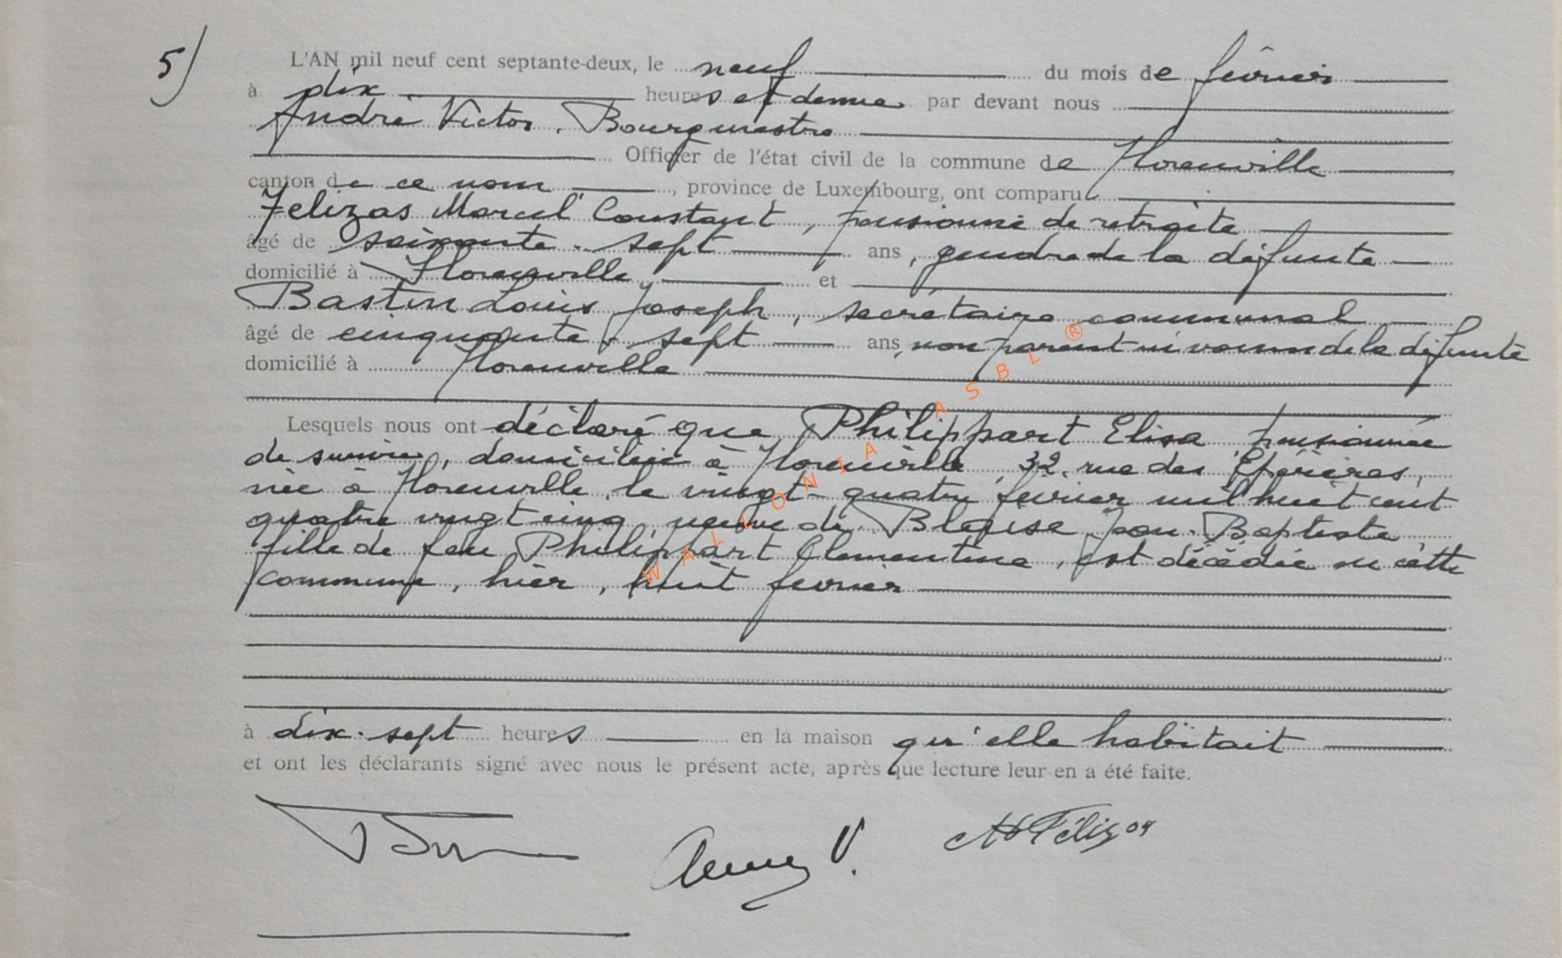 5)
L'AN mil neuf cent septante-deux, le neuf du mois de février
à dix heures et demie par devant nous
André Victor, Bourgmestre
Officier de l'état civil de la commune de Florenville
canton de ce nom, province de Luxembourg, ont comparu
Felizas Marcel Constant, pensionné de retraite
âgé de soixante-sept ans, gendre de la défunte
domicilié à Florenville et
Bastin Louis Joseph, secrétaire communal
âgé de cinquante-sept ans, non parent ni voisin de la défunte
domicilié à Florenville
Lesquels nous ont déclaré que Philippart Elisa pensionnée
de survie, domiciliée à Florenville, 32, rue des Épérières,
née à Florenville, le vingt-quatre février mil huit cent
quatre vingt cinq, veuve de Blaise Jean-Baptiste
fille de feu Philippart Clementine, est décédée en cette
commune, hier, huit février
à dix-sept heures en la maison qu'elle habitait
et ont les déclarants signé avec nous le présent acte, après que lecture leur en a été faite.
WALLONIA ASBL ®